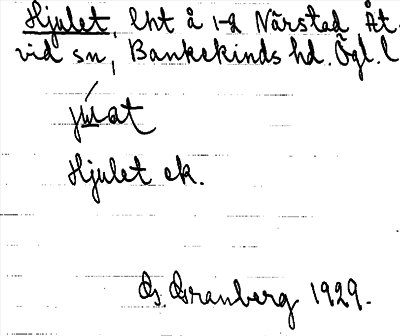 Hjulet, lht å 1-2 Närstad, Åt-
vid sn, Bankekinds hd. Ögl. l
júlat
Hjulet ek.
G. Granberg 1929.